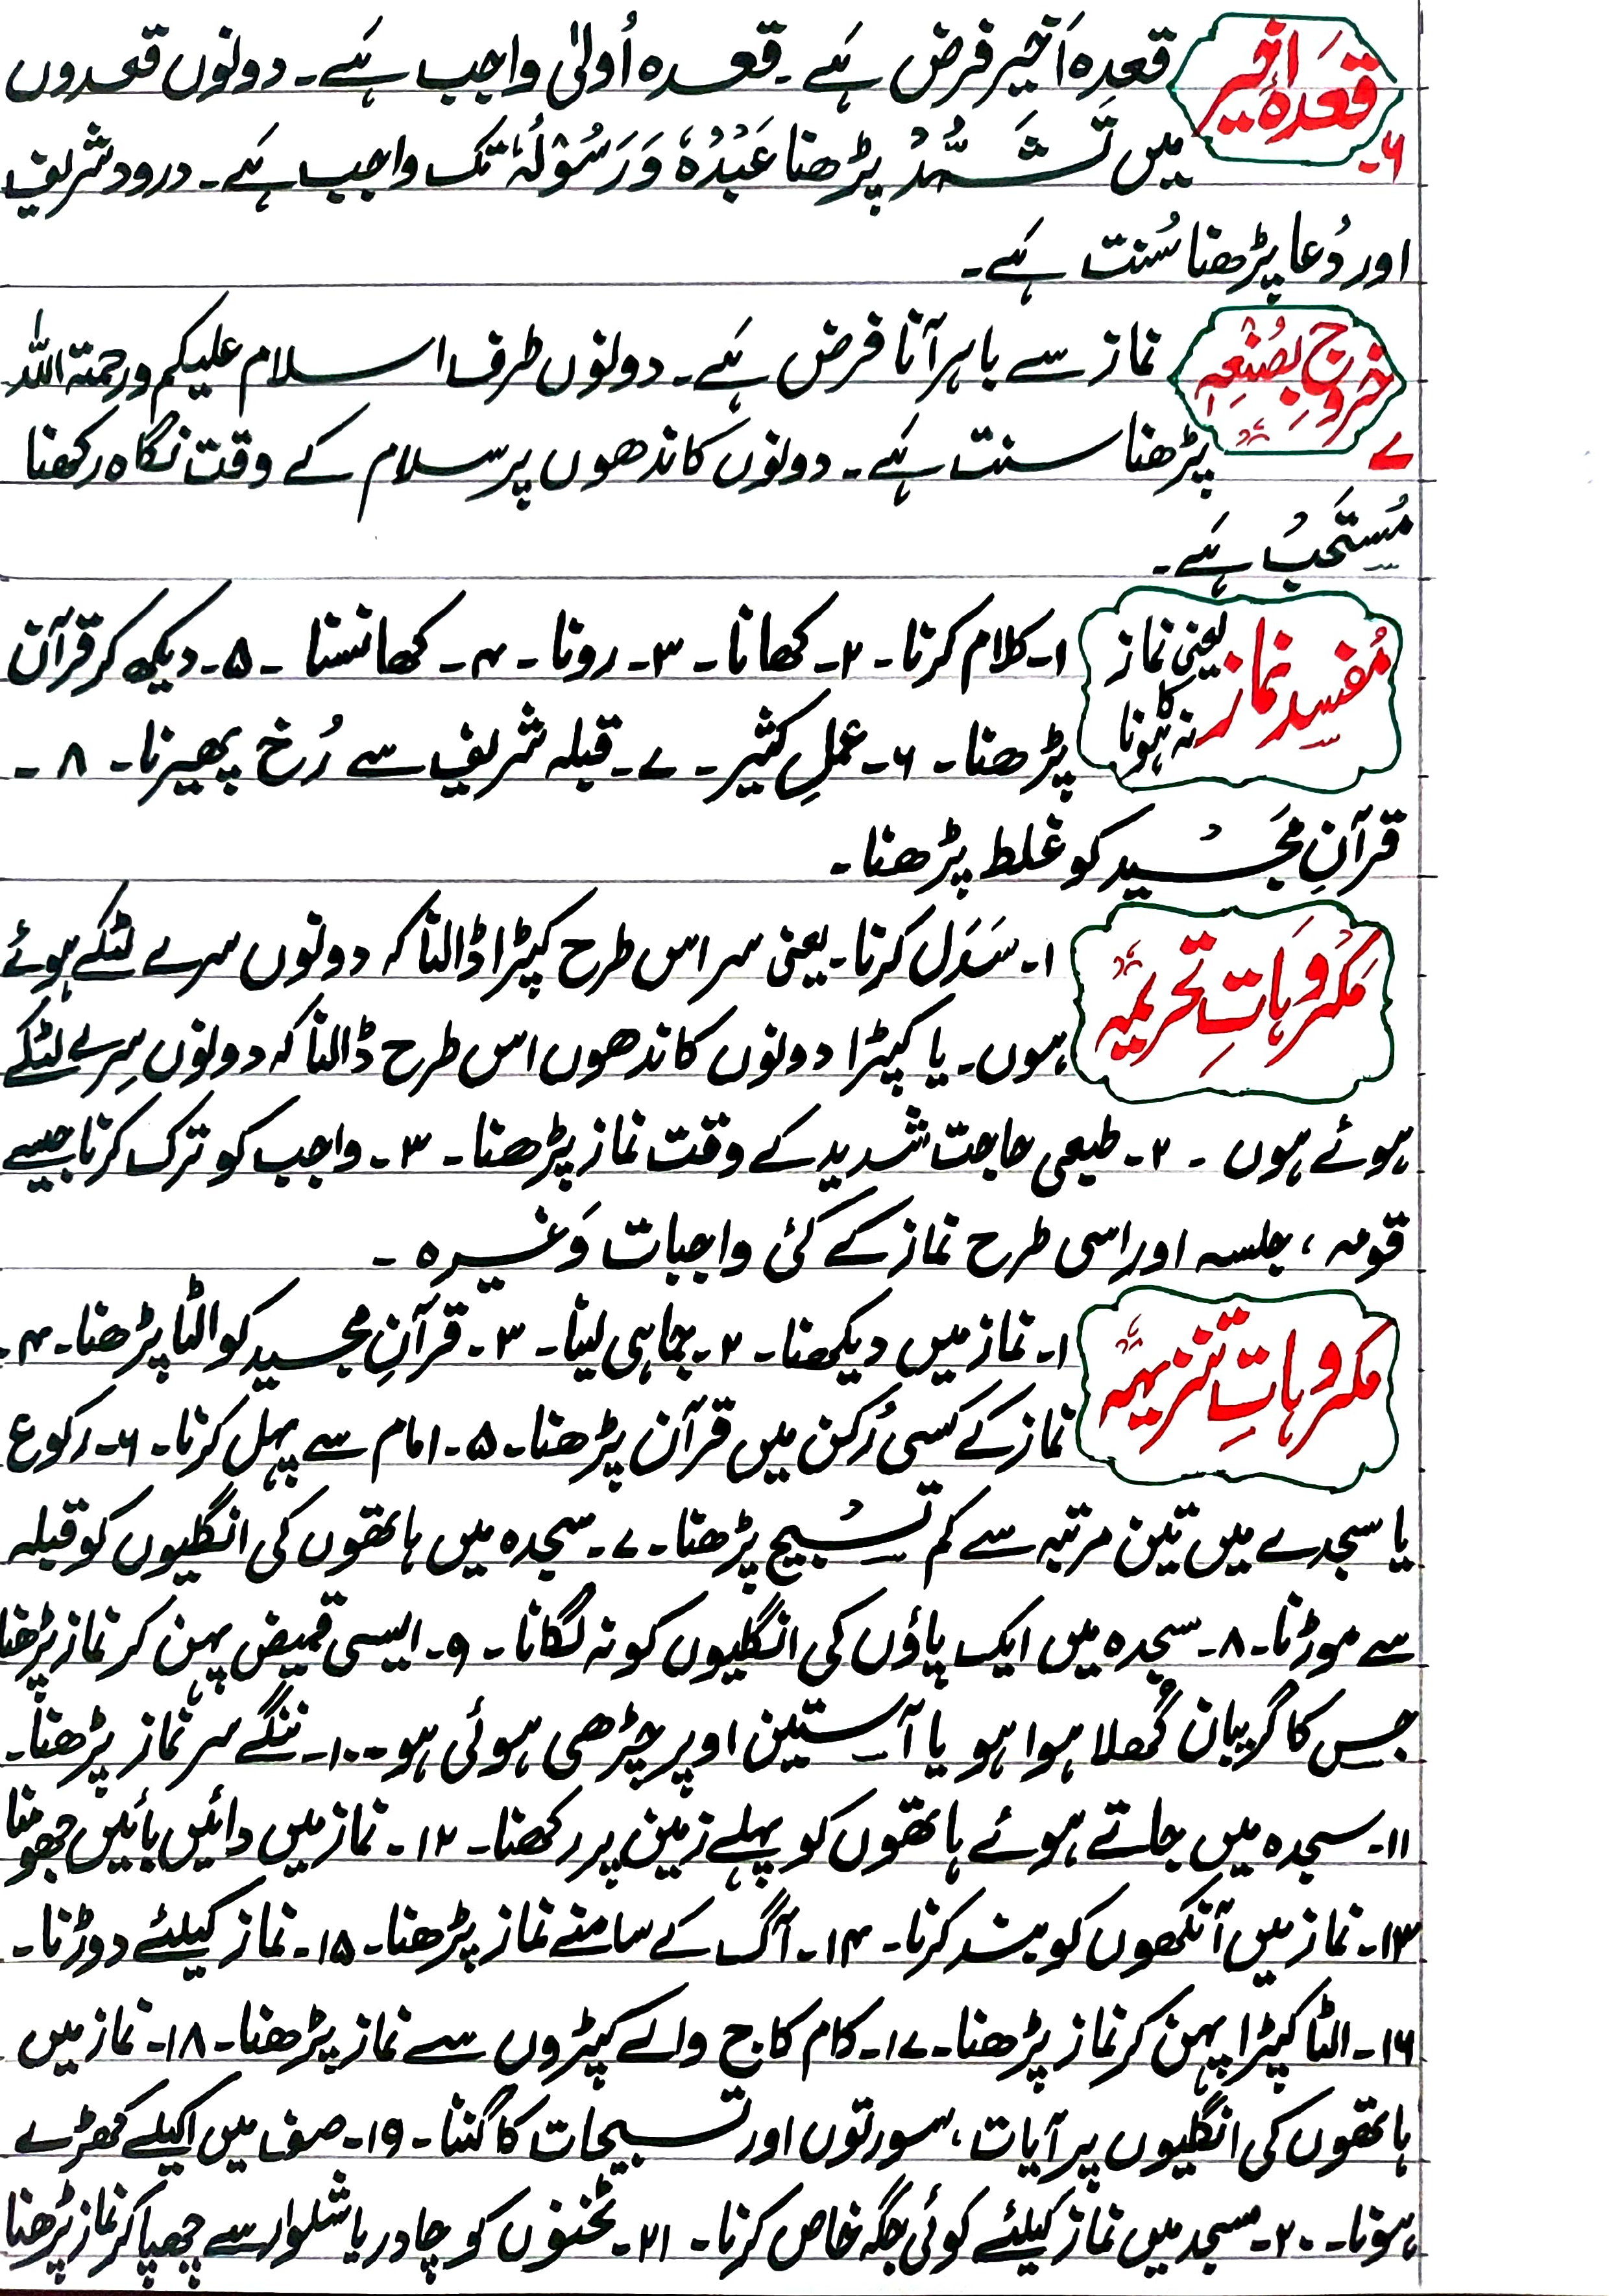 ۶ قعدۂ اخیر
قعدہ اَخیر فرض ہے۔ قعدہ اُولیٰ واجب ہے۔ دونوں قعدوں
میں تَشَہُّدْ پڑھنا عَبْدُہٗ وَرَسُوْلُہٗ تک واجب ہے۔ درود شریف
اور دُعا پڑھنا سُنت ہے۔
۷ خروجِ بصُنْعِہٖ
نماز سے باہر آنا فرض ہے۔ دونوں طرف اسلام علیکم ورحمتہ اللہ
پڑھنا سنت ہے۔ دونوں کاندھوں پر سلام کے وقت نگاہ رکھنا
مُستَحَبْ ہے۔
مُفسِدِ نماز یعنی نماز کا نہ ہونا
۱۔ کلام کرنا۔ ۲۔ کھانا۔ ۳۔ رونا۔ ۴۔ کھانسنا ۔ ۵۔ دیکھ کر قرآن
پڑھنا۔ ۶۔ عملِ کثیر۔ ۷۔ قبلہ شریف سے رُخ پھیرنا۔ ۸۔
قرآنِ مَجْید کو غلط پڑھنا۔
مَکروہَاتِ تحریمیہ
۱۔ سَدَل کرنا۔ یعنی سر اس طرح کپڑا ڈالنا کہ دونوں سرے لٹکے ہوئے
ہوں۔ یا کپڑا دونوں کاندھوں اس طرح ڈالنا کہ دونوں سِرے لٹکے
ہوئے ہوں ۔ ۲۔ طبعی حاجت شدید کے وقت نماز پڑھنا۔ ۳۔ واجب کو ترک کرنا جیسے
قومہ ، جلسہ اور اسی طرح نماز کے کئی واجبات وَغیرہ ۔
مکروہاتِ تنزیہیہ
۱۔ نماز میں دیکھنا۔ ۲۔ جماہی لینا۔ ۳۔ قرآنِ مجید کو الٹا پڑھنا۔ ۴۔
نماز کے کسی رُکن میں قرآن پڑھنا۔ ۵۔ امام سے پہل کرنا۔ ۶۔ رکوع
یا سجدے میں تین مرتبہ سے کم تسْبیح پڑھنا۔ ۷۔ سجدہ میں ہاتھوں کی انگلیوں کو قبلہ
سے موڑنا۔ ۸۔ سجدہ میں ایک پاؤں کی انگلیوں کو نہ لگانا۔ ۹۔ ایسی قمیض پہن کر نماز پڑھنا
جس کا گریبان کُھلا ہوا ہو یا آستین اوپر چڑھی ہوئی ہو۔ ۱۰۔ ننگے سر نماز پڑھنا۔
۱۱۔ سجدہ میں جاتے ہوئے ہاتھوں کو پہلے زمین پر رکھنا۔ ۱۲۔ نماز میں دائیں بائیں جھومنا
۱۳۔ نماز میں آنکھوں کو بند کرنا۔ ۱۴۔ آگ کے سامنے نماز پڑھنا۔ ۱۵۔ نماز کیلئے دوڑنا۔
۱۶۔ الٹا کپڑا پہن کر نماز پڑھنا۔ ۱۷۔ کام کاج والے کپڑوں سے نماز پڑھنا۔ ۱۸۔ نماز میں
ہاتھوں کی انگلیوں پر آیات ، سورتوں اور تسبیحات کا گننا۔ ۱۹۔ صف میں اکیلے کھڑے
ہونا۔ ۲۰۔ مسجد میں نماز کیلئے کوئی جگہ خاص کرنا۔ ۲۱۔ ٹخنوں کو چادر یا شلوار سے چھپا کر نماز پڑھنا